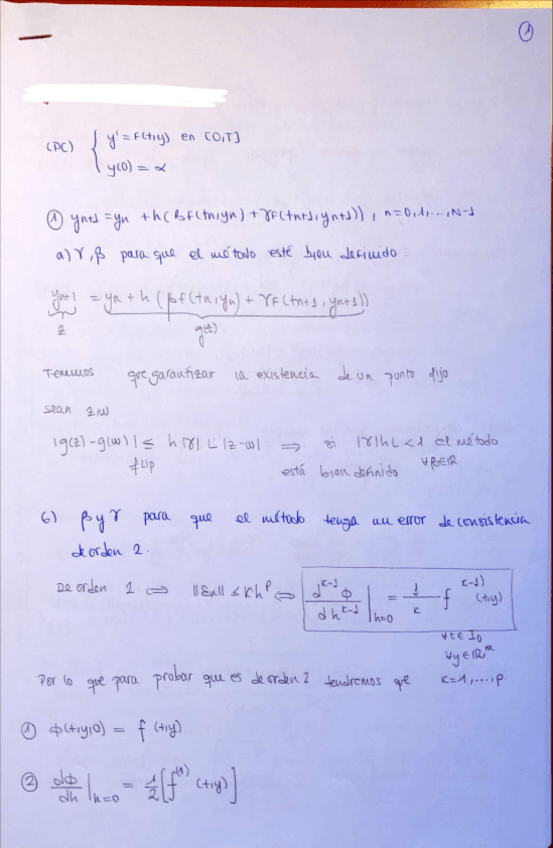 1
(PC) { y' = f(t,y) en [0,T]
y(0) = α
① yn+1 = yn + h(βf(tn,yn) + γf(tn+1,yn+1)), n=0,1,...,N-1
a) γ, β para que el método esté bien definido.
yn+1 = yn + h(βf(tn,yn) + γf(tn+1, yn+1))
z g(z)
Tenemos que garantizar la existencia de un punto fijo
sean z,w
|g(z)-g(w)| ≤ h|γ| L |z-w| ⇒ si |γ|hL < 1 el método
f Lip está bien definido ∀β∈ℝ
b) β y γ para que el método tenga un error de consistencia
de orden 2.
De orden 2 ⇔ ||εn|| ≤ Kh^p ⇔ d^(k-1) ϕ / dh^(k-1) |h=0 = 1/k f^(k-1) (t,y)
∀t∈I0
∀y∈ℝ^m
Por lo que para probar que es de orden 2 tendremos que k=1,...,p
① ϕ(t,y,0) = f(t,y)
② dϕ/dh |h=0 = 1/2 [f^(1) (t,y)]